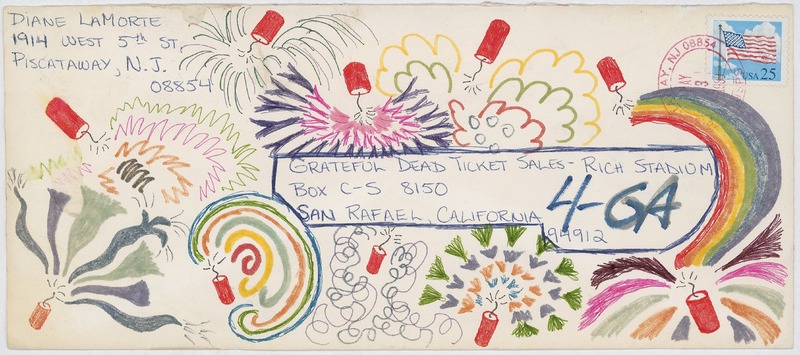 DIANE LAMORTE
1914 WEST 5th ST.
PISCATAWAY, N.J.
08854
AY, NJ 08854
MAY
3
USA 25
GRATEFUL DEAD TICKET SALES - RICH STADIUM
BOX C-S 8150
SAN RAFAEL, CALIFORNIA
94912
4-GA